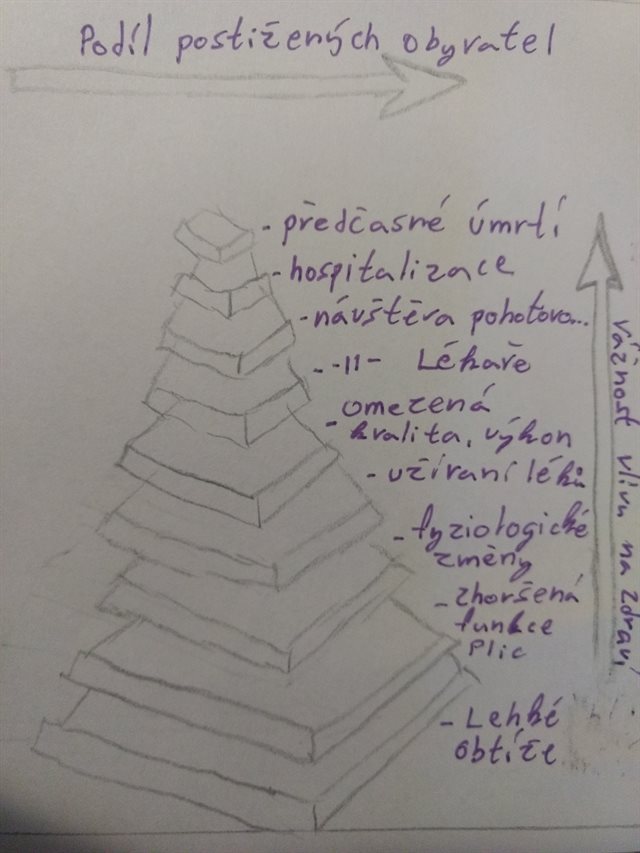 Podíl postižených obyvatel
- předčasné úmrtí
- hospitalizace
- návštěva pohotovo...
- -11- Lékaře
- omezená
kvalita, výkon
- užívaní léků
- fyziologické
změny
- zhoršená
funkce
Plic
- Lehké
obtíže
Vážnost vlivu na zdraví